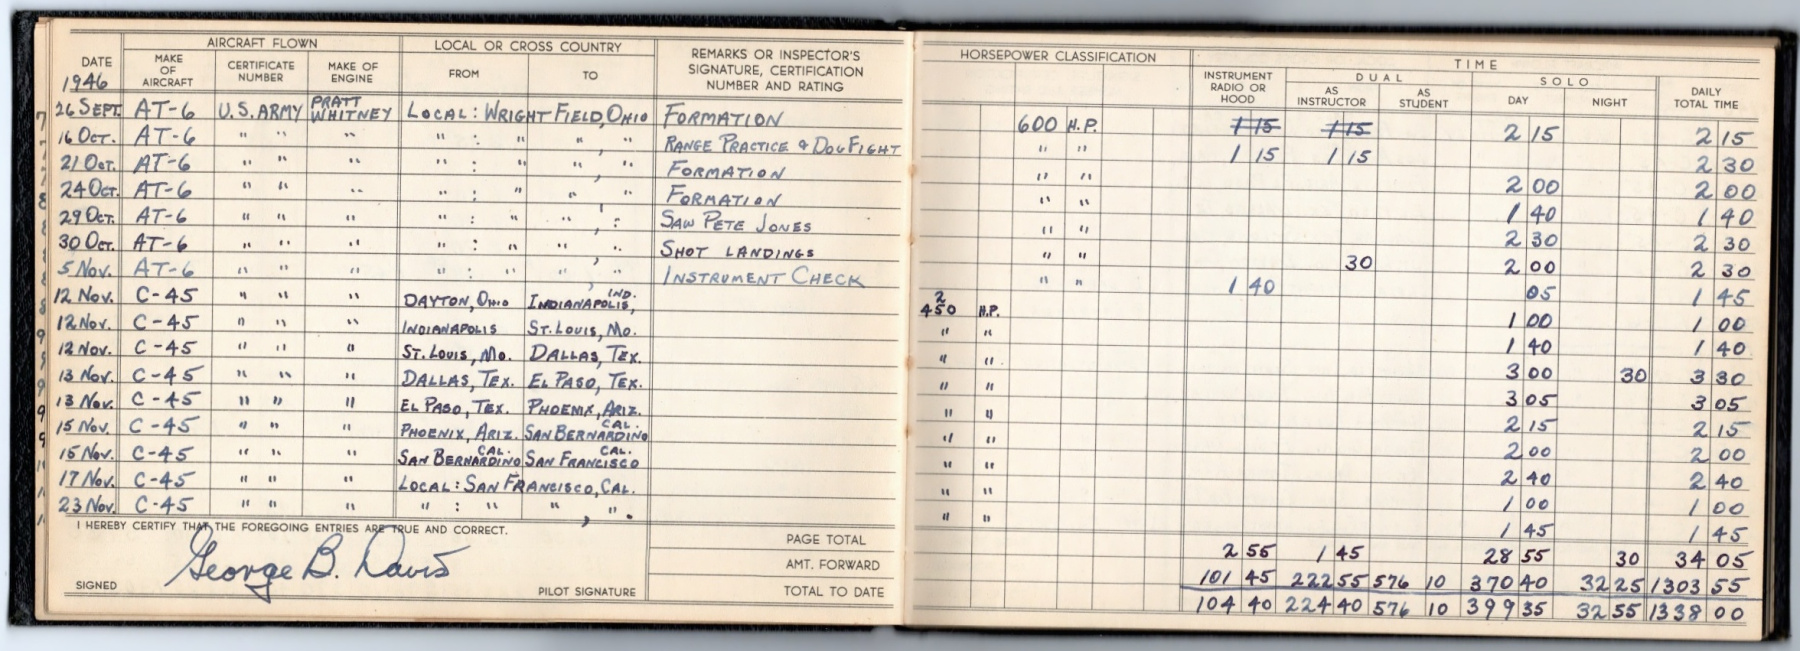 AIRCRAFT FLOWN LOCAL OR CROSS COUNTRY REMARKS OR INSPECTOR'S SIGNATURE, CERTIFICATION NUMBER AND RATING HORSEPOWER CLASSIFICATION TIME
DATE MAKE OF AIRCRAFT CERTIFICATE NUMBER MAKE OF ENGINE FROM TO INSTRUMENT RADIO OR HOOD DUAL AS INSTRUCTOR AS STUDENT SOLO DAY NIGHT DAILY TOTAL TIME
1946
26 SEPT. AT-6 U.S. ARMY PRATT WHITNEY LOCAL: WRIGHT FIELD, OHIO FORMATION 600 H.P. 1 15 1 15 2 15 2 15
16 OCT. AT-6 " " " " : " " , " RANGE PRACTICE & DOGFIGHT " " 1 15 1 15 2 30
21 OCT. AT-6 " " " " : " " , " FORMATION " " 2 00 2 00
24 OCT. AT-6 " " " " : " " , " FORMATION " " 1 40 1 40
29 OCT. AT-6 " " " " : " " , " SAW PETE JONES " " 2 30 2 30
30 OCT. AT-6 " " " " : " " , " SHOT LANDINGS " " 30 2 00 2 30
5 NOV. AT-6 " " " " : " " , " INSTRUMENT CHECK " " 1 40 05 1 45
12 NOV. C-45 " " " DAYTON, OHIO INDIANAPOLIS, IND. 2 450 H.P. 1 00 1 00
12 NOV. C-45 " " " INDIANAPOLIS ST. LOUIS, MO. " " 1 40 1 40
12 NOV. C-45 " " " ST. LOUIS, MO. DALLAS, TEX. " " 3 00 30 3 30
13 NOV. C-45 " " " DALLAS, TEX. EL PASO, TEX. " " 3 05 3 05
13 NOV. C-45 " " " EL PASO, TEX. PHOENIX, ARIZ. " " 2 15 2 15
15 NOV. C-45 " " " PHOENIX, ARIZ. SAN BERNARDINO CAL. " " 2 00 2 00
15 NOV. C-45 " " " SAN BERNARDINO CAL. SAN FRANCISCO CAL. " " 2 40 2 40
17 NOV. C-45 " " " LOCAL: SAN FRANCISCO, CAL. " " 1 00 1 00
23 NOV. C-45 " " " " : " " , ". " " 1 45 1 45
I HEREBY CERTIFY THAT THE FOREGOING ENTRIES ARE TRUE AND CORRECT.
PAGE TOTAL 2 55 1 45 28 55 30 34 05
George B. Davis
AMT. FORWARD 101 45 222 55 576 10 370 40 32 25 1303 55
SIGNED PILOT SIGNATURE TOTAL TO DATE 104 40 224 40 576 10 399 35 32 55 1338 00